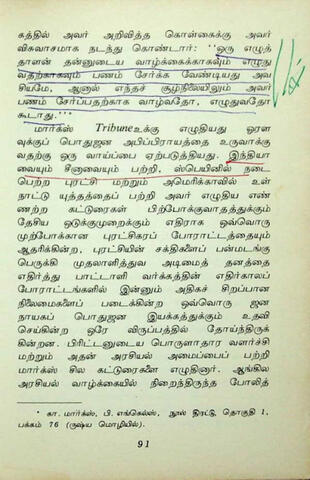 கத்தில் அவர் அறிவித்த கொள்கைக்கு அவர்
விசுவாசமாக நடந்து கொண்டார்: ''ஒரு எழுத்
தாளன் தன்னுடைய வாழ்க்கைக்காகவும் எழுது
வதற்காகவும் பணம் சேர்க்க வேண்டியது அவ
சியமே, ஆனால் எந்தச் சூழ்நிலையிலும் அவர்
பணம் சேர்ப்பதற்காக வாழ்வதோ, எழுதுவதோ
கூடாது.''*
மார்க்ஸ் Tribuneஉக்கு எழுதியது ஓரள
வுக்குப் பொதுஜன அபிப்பிராயத்தை உருவாக்கு
வதற்கு ஒரு வாய்ப்பை ஏற்படுத்தியது. இந்தியா
வையும் சீனாவையும் பற்றி, ஸ்பெயினில் நடை
பெற்ற புரட்சி மற்றும் அமெரிக்காவில் உள்
நாட்டு யுத்தத்தைப் பற்றி அவர் எழுதிய எண்
ணற்ற கட்டுரைகள் பிற்போக்குவாதத்துக்கும்
தேசிய ஒடுக்குமுறைக்கும் எதிராக ஒவ்வொரு
முற்போக்கான புரட்சிகரப் போராட்டத்தையும்
ஆதரிக்கின்ற, புரட்சியின் சக்திகளைப் பன்மடங்கு
பெருக்கி முதலாளித்துவ அடிமைத் தனத்தை
எதிர்த்து பாட்டாளி வர்க்கத்தின் எதிர்காலப்
போராட்டங்களில் இன்னும் அதிகச் சிறப்பான
நிலைமைகளைப் படைக்கின்ற ஒவ்வொரு ஜன
நாயகப் பொதுஜன இயக்கத்துக்கும் உதவி
செய்கின்ற ஒரே விருப்பத்தில் தோய்ந்திருக்
கின்றன. பிரிட்டனுடைய பொருளாதார வளர்ச்சி
மற்றும் அதன் அரசியல் அமைப்பைப் பற்றி
மார்க்ஸ் சில கட்டுரைகளை எழுதினார். ஆங்கில
அரசியல் வாழ்க்கையில் நிறைந்திருந்த போலித்
* கா. மார்க்ஸ், பி. எங்கெல்ஸ், நூல் திரட்டு, தொகுதி 1,
பக்கம் 76 (ருஷ்ய மொழியில்).
91